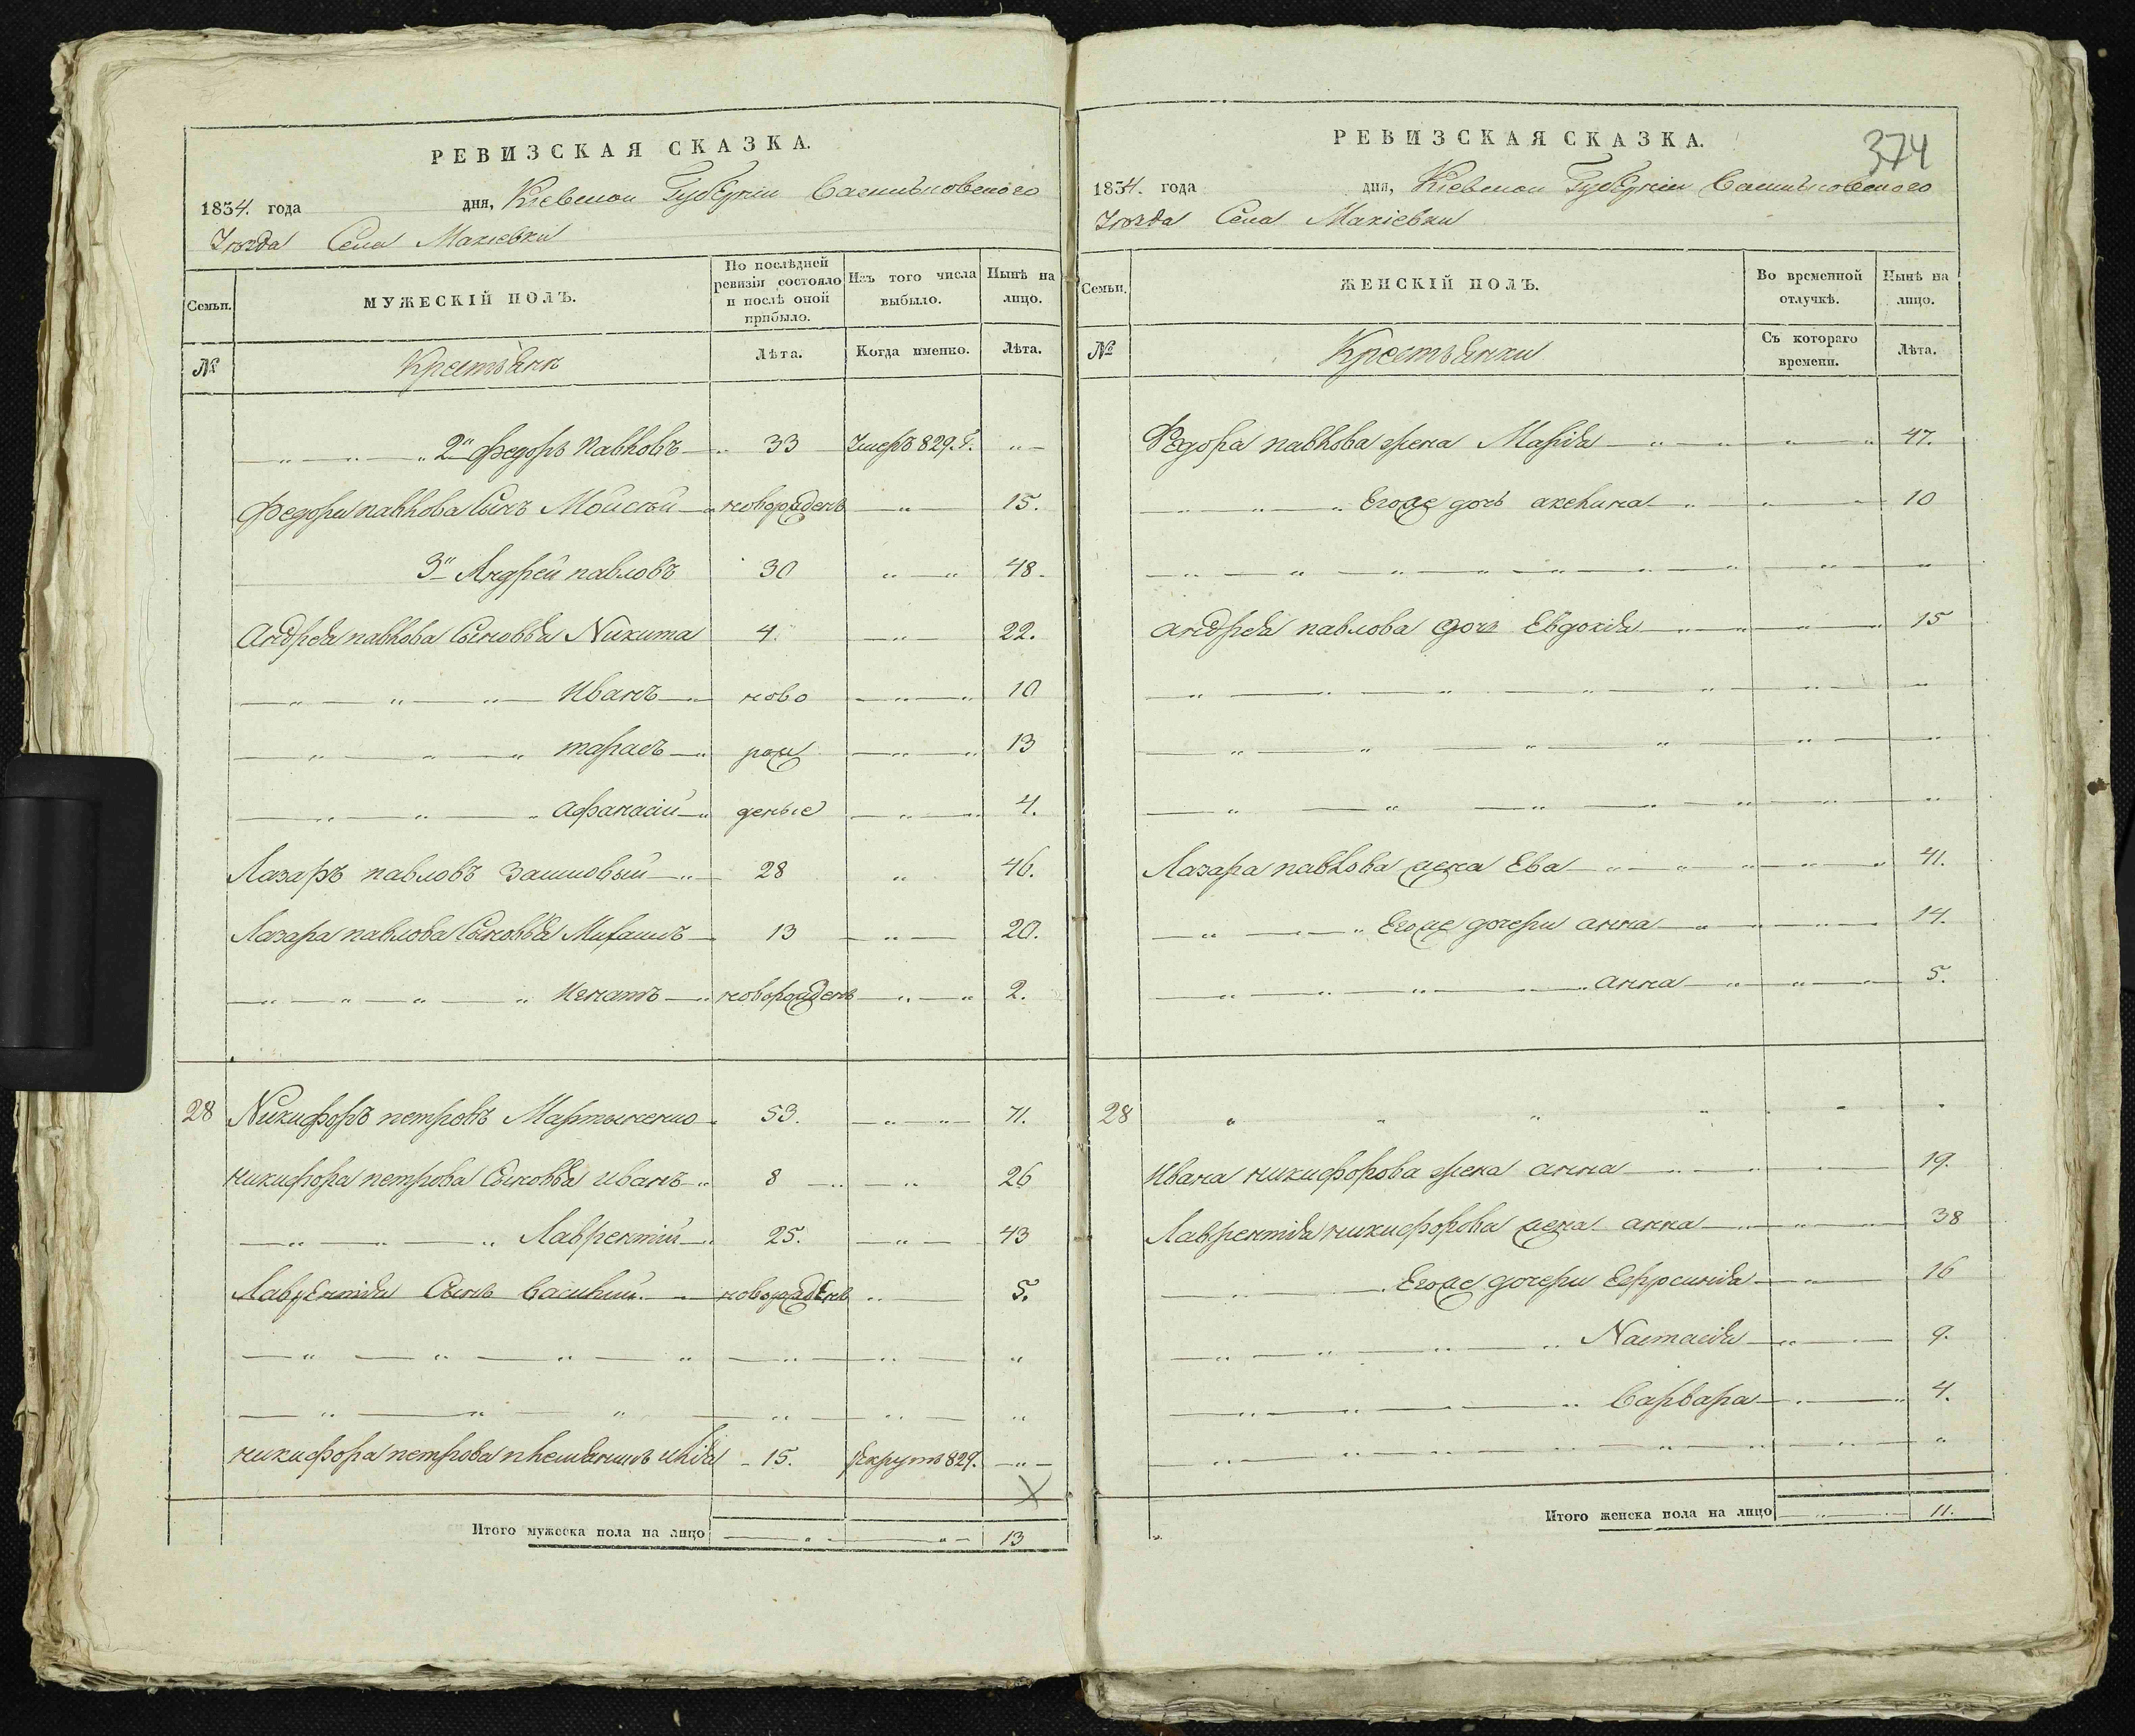 РЕВИЗСКАЯ СКАЗКА.
1834. года дня, Кіевской Губерніи Васильковского
Уѣзда Села Макіевки
Семьи.
МУЖЕСКІЙ ПОЛЪ.
По послѣдней ревизіи состояло и послѣ оной прибыло.
Изъ того числа выбыло.
Нынѣ на лицо.
№
Крестьянъ
Лѣта.
Когда именно.
Лѣта.
2й Федоръ павловъ 33 Умеръ 829. г.
Федора павлова Сынъ Моисей новорожденъ 15.
3й Андрей павловъ 30 48.
Андрея павлова Сыновья Никита 4. 22.
Иванъ ново 10
тарасъ рож 13
Афанасій деные 4.
Лазаръ павловъ 28 46.
Лазара павлова Сыновья Михаилъ 13 20.
Игнатъ новорожденъ 2.
28 Никифоръ петровъ Мартыненко 53. 71.
никифора петрова Сыновья иванъ 8 26
Лаврентій 25. 43
Лаврентія Сынъ василий новорожденъ 5.
никифора петрова племянникъ илія 15. рекрутъ 829.
Итого мужеска пола на лицо 13
РЕВИЗСКАЯ СКАЗКА.
374
1834. года дня, Кіевской Губерніи Васильковского
Уѣзда Села Макіевки
Семьи.
ЖЕНСКІЙ ПОЛЪ.
Во временной отлучкѣ.
Нынѣ на лицо.
№
Крестьянки
Съ котораго времени.
Лѣта.
Федора павлова жена Марія 47.
Егоже дочь акелина 10
андрея павлова дочь Евдокія 15
Лазара павлова жена Ева 41.
Егоже дочери анна 14.
анна 5.
28
Ивана никифорова жена анна 19.
Лаврентія никифорова жена анна 38
Егоже дочери Ефросинія 16
Настасія 9.
Варвара 4.
Итого женска пола на лицо 11.